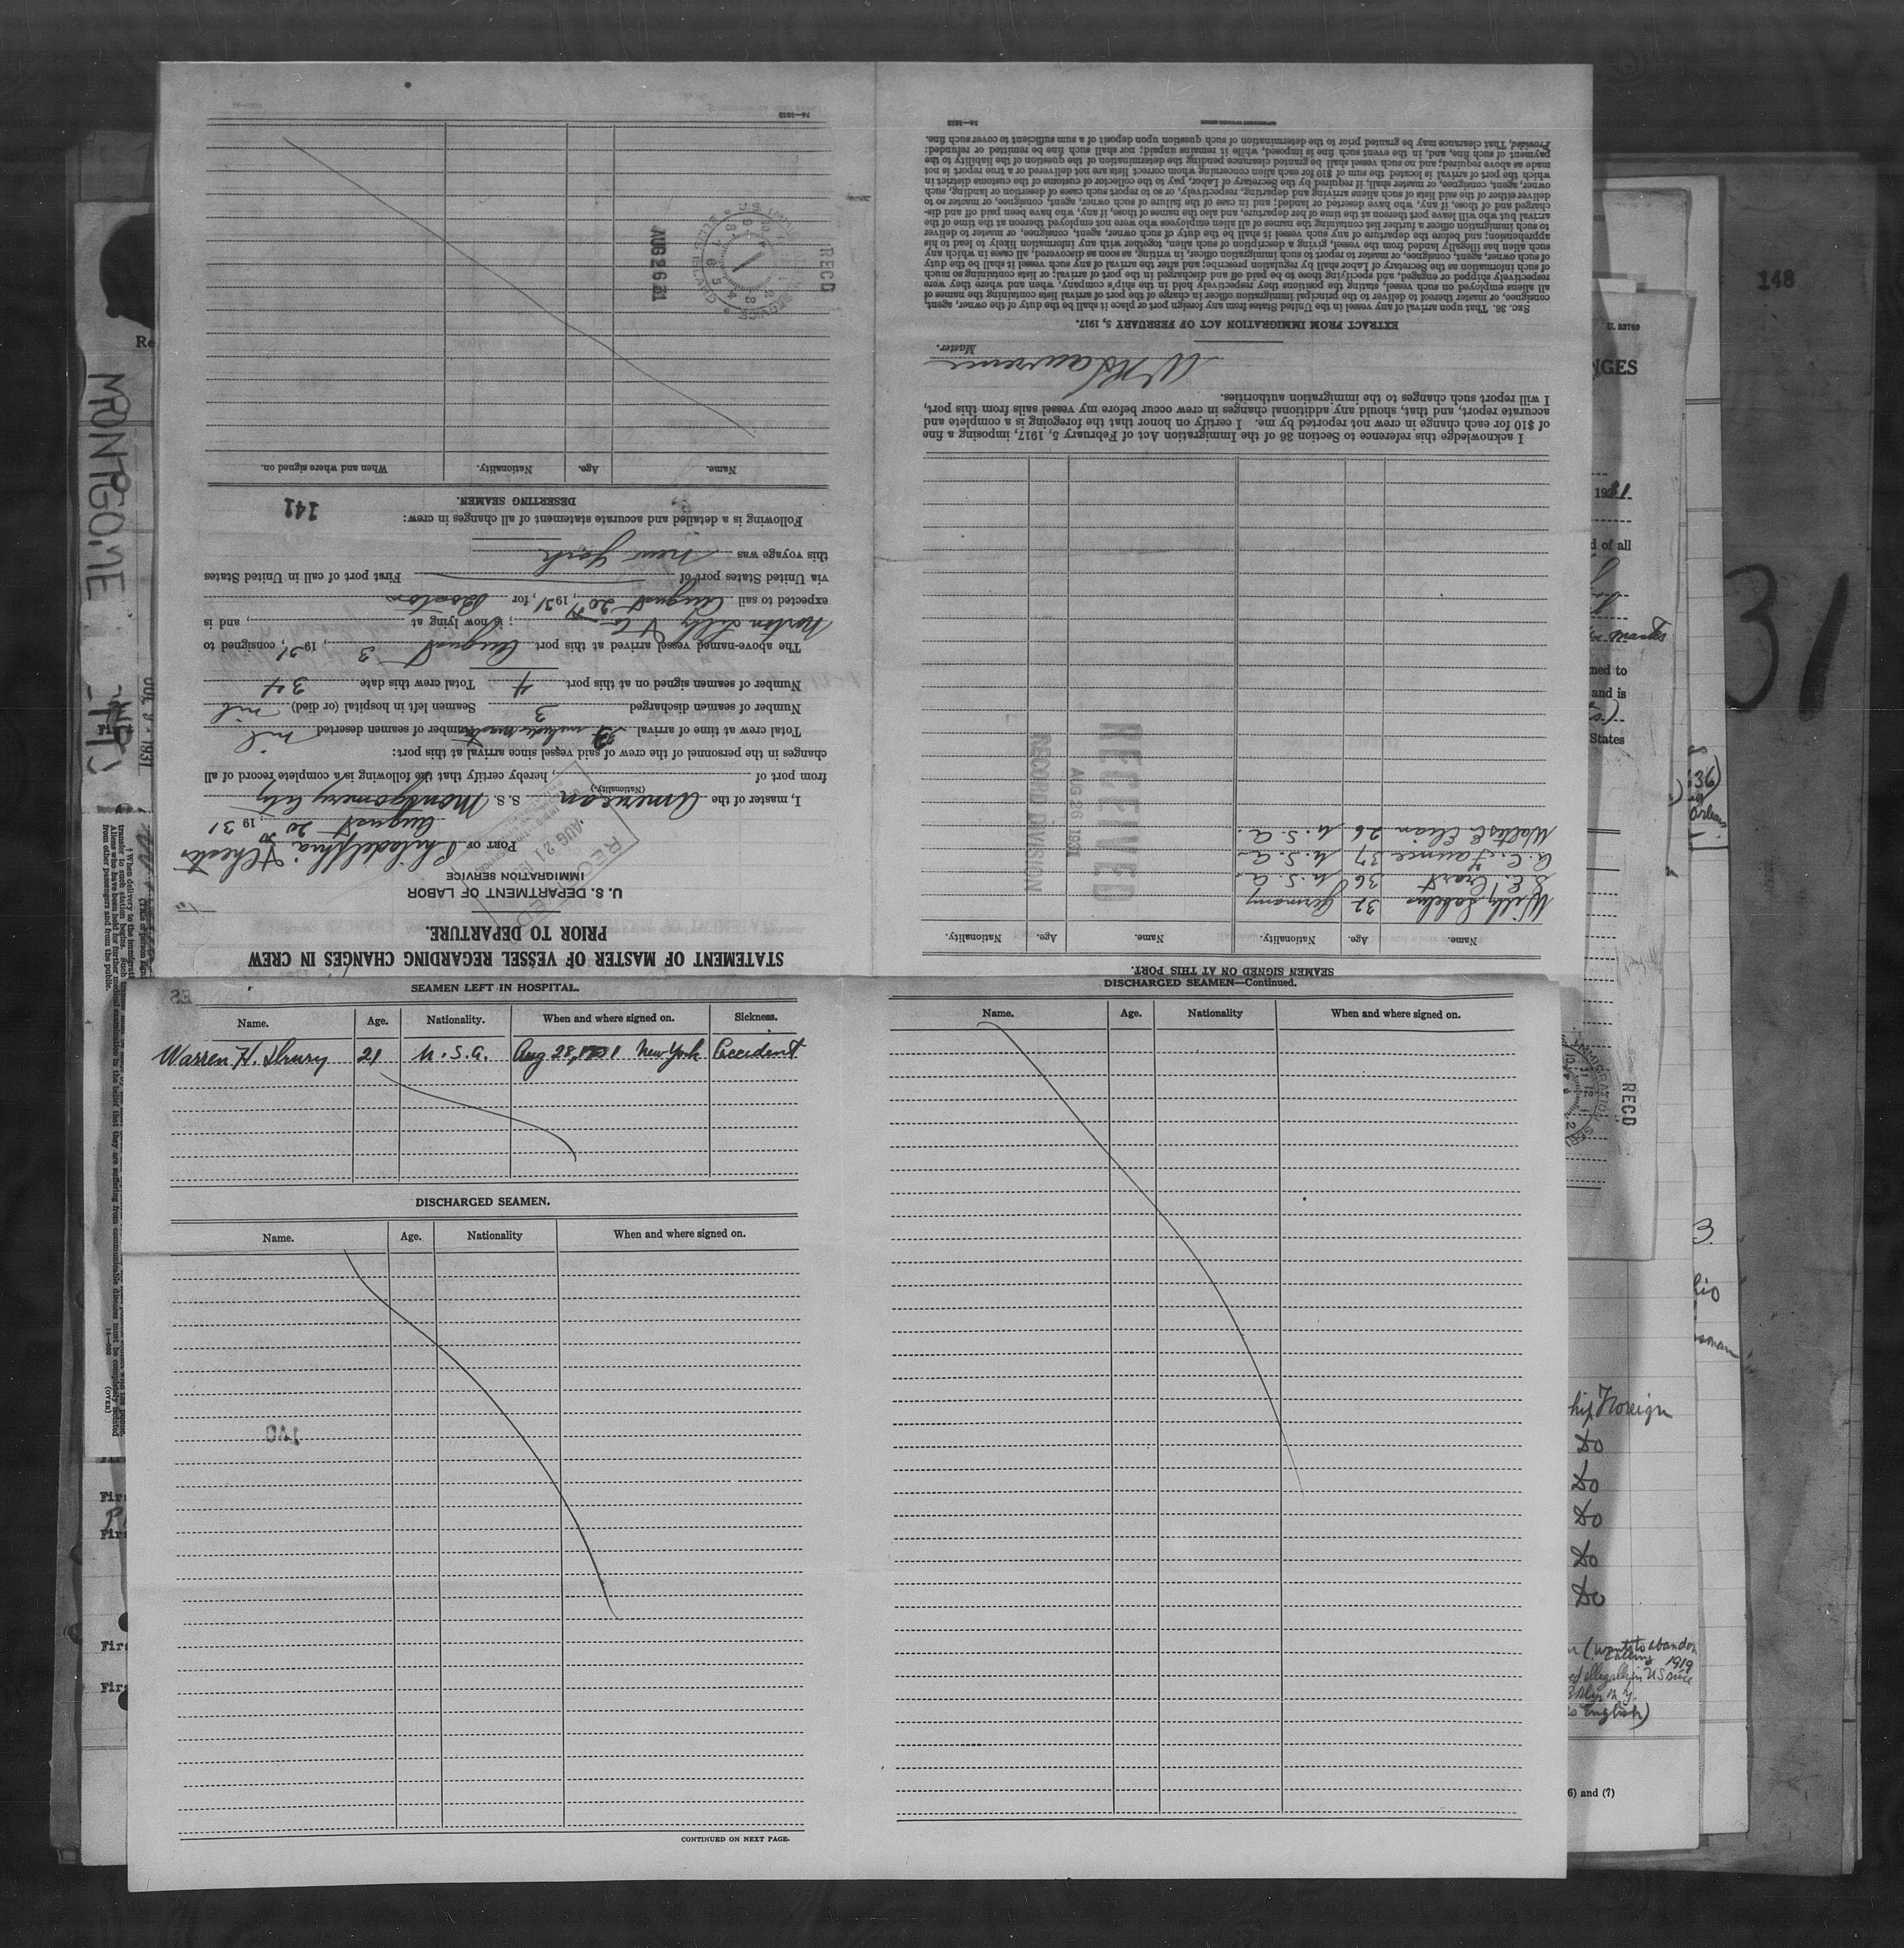 STATEMENT OF MASTER OF VESSEL REGARDING CHANGES IN CREW
PRIOR TO DEPARTURE.
U. S. DEPARTMENT OF LABOR
IMMIGRATION SERVICE
PORT OF Philadelphia & Chester
August 20, 1931
I, master of the American S. S. Montgomery City
(Nationality)
from port of , hereby certify that the following is a complete record of all
changes in the personnel of the crew of said vessel since arrival at this port:
Total crew at time of arrival Number of seamen deserted nil
Number of seamen discharged 3 Seamen left in hospital (or died) nil
Number of seamen signed on at this port 4 Total crew this date 34
The above-named vessel arrived at this port August 3, 1931, consigned to
Norton Lilly & Co; is now lying at , and is
expected to sail August 20th, 1931, for Boston
via United States port of First port of call in United States
this voyage was New York
Following is a detailed and accurate statement of all changes in crew:
141
DESERTING SEAMEN.
Name. Age. Nationality. When and where signed on.
RECEIVED
AUG 21
REC'D
AUG 26 31
14—1813
SEAMEN SIGNED ON AT THIS PORT.
Name. Age. Nationality. Name. Age. Nationality.
Willy 32 Germany
36 U.S.A.
A. C. 37 U.S.A.
Walter E. 26 U.S.A.
RECEIVED
AUG 26 1931
RECORD DIVISION
I acknowledge this reference to Section 36 of the Immigration Act of February 5, 1917, imposing a fine
of $10 for each change in crew not reported by me. I certify on honor that the foregoing is a complete and
accurate report, and that, should any additional changes in crew occur before my vessel sails from this port,
I will report such changes to the immigration authorities.
Lawrence
Master.
EXTRACT FROM IMMIGRATION ACT OF FEBRUARY 5, 1917.
SEC. 36. That upon arrival of any vessel in the United States from any foreign port or place it shall be the duty of the owner, agent,
consignee, or master thereof to deliver to the principal immigration officer in charge of the port of arrival lists containing the names of
all aliens employed on such vessel, stating the positions they respectively hold in the ship's company, when and where they were
respectively shipped or engaged, and specifying those to be paid off and discharged in the port of arrival; or lists containing so much
of such information as the Secretary of Labor shall by regulation prescribe; and after the arrival of any such vessel it shall be the duty
of such owner, agent, consignee, or master to report to such immigration officer, in writing, as soon as discovered, all cases in which any
such alien has illegally landed from the vessel, giving a description of such alien, together with any information likely to lead to his
apprehension; and before the departure of any such vessel it shall be the duty of such owner, agent, consignee, or master to deliver
to such immigration officer a further list containing the names of all alien employees who were not employed thereon at the time of the
arrival but who will leave port thereon at the time of her departure, and also the names of those, if any, who have been paid off and dis-
charged and of those, if any, who have deserted or landed; and in case of the failure of such owner, agent, consignee, or master so to
deliver either of the said lists of such aliens arriving and departing, respectively, or so to report such cases of desertion or landing, such
owner, agent, consignee, or master shall, if required by the Secretary of Labor, pay to the collector of customs of the customs district in
which the port of arrival is located the sum of $10 for each alien concerning whom correct lists are not delivered or a true report is not
made as above required; and no such vessel shall be granted clearance pending the determination of the question of the liability to the
payment of such fine, and, in the event such fine is imposed, while it remains unpaid; nor shall such fine be remitted or refunded:
Provided, That clearance may be granted prior to the determination of such question upon deposit of a sum sufficient to cover such fine.
SEAMEN LEFT IN HOSPITAL.
Name. Age. Nationality. When and where signed on. Sickness.
Warren H. Drury 21 U.S.A. Aug 28, 1931 New York Accident
DISCHARGED SEAMEN.
Name. Age. Nationality When and where signed on.
140
CONTINUED ON NEXT PAGE.
DISCHARGED SEAMEN—Continued.
Name. Age. Nationality When and where signed on.
148
31
U. 23769
NGES
d of all
ned to
and is
States
REC'D
Foreign
Do
Do
Do
Do
Do
6) and (7)
(OVER)